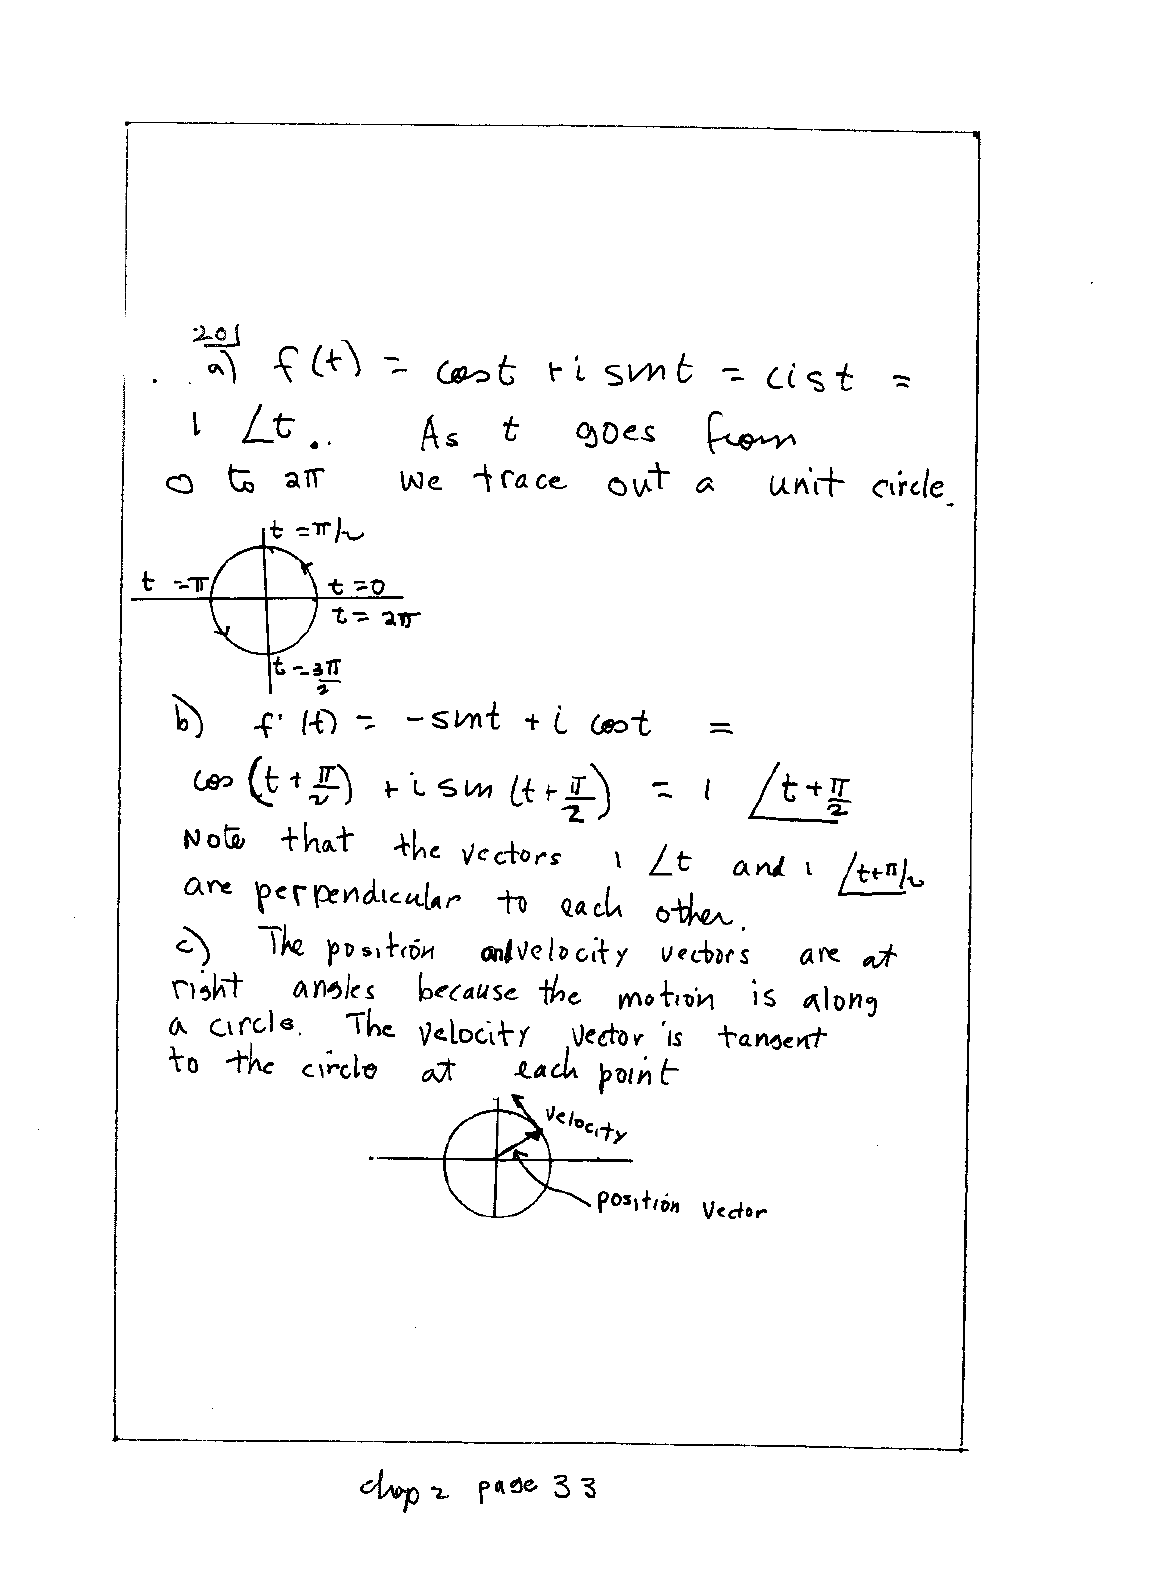 201
a) f(t) = cost + i sint = cis t =
1 ∠t. As t goes from
0 to 2π we trace out a unit circle.
t = π/2
t = π
t = 0
t = 2π
t = 3π/2
b) f'(t) = -sint + i cost =
cos(t + π/2) + i sin(t + π/2) = 1 ∠t + π/2
Note that the vectors 1 ∠t and 1 ∠t+π/2
are perpendicular to each other.
c) The position and velocity vectors are at
right angles because the motion is along
a circle. The velocity vector is tangent
to the circle at each point
velocity
position vector
chap 2 page 33